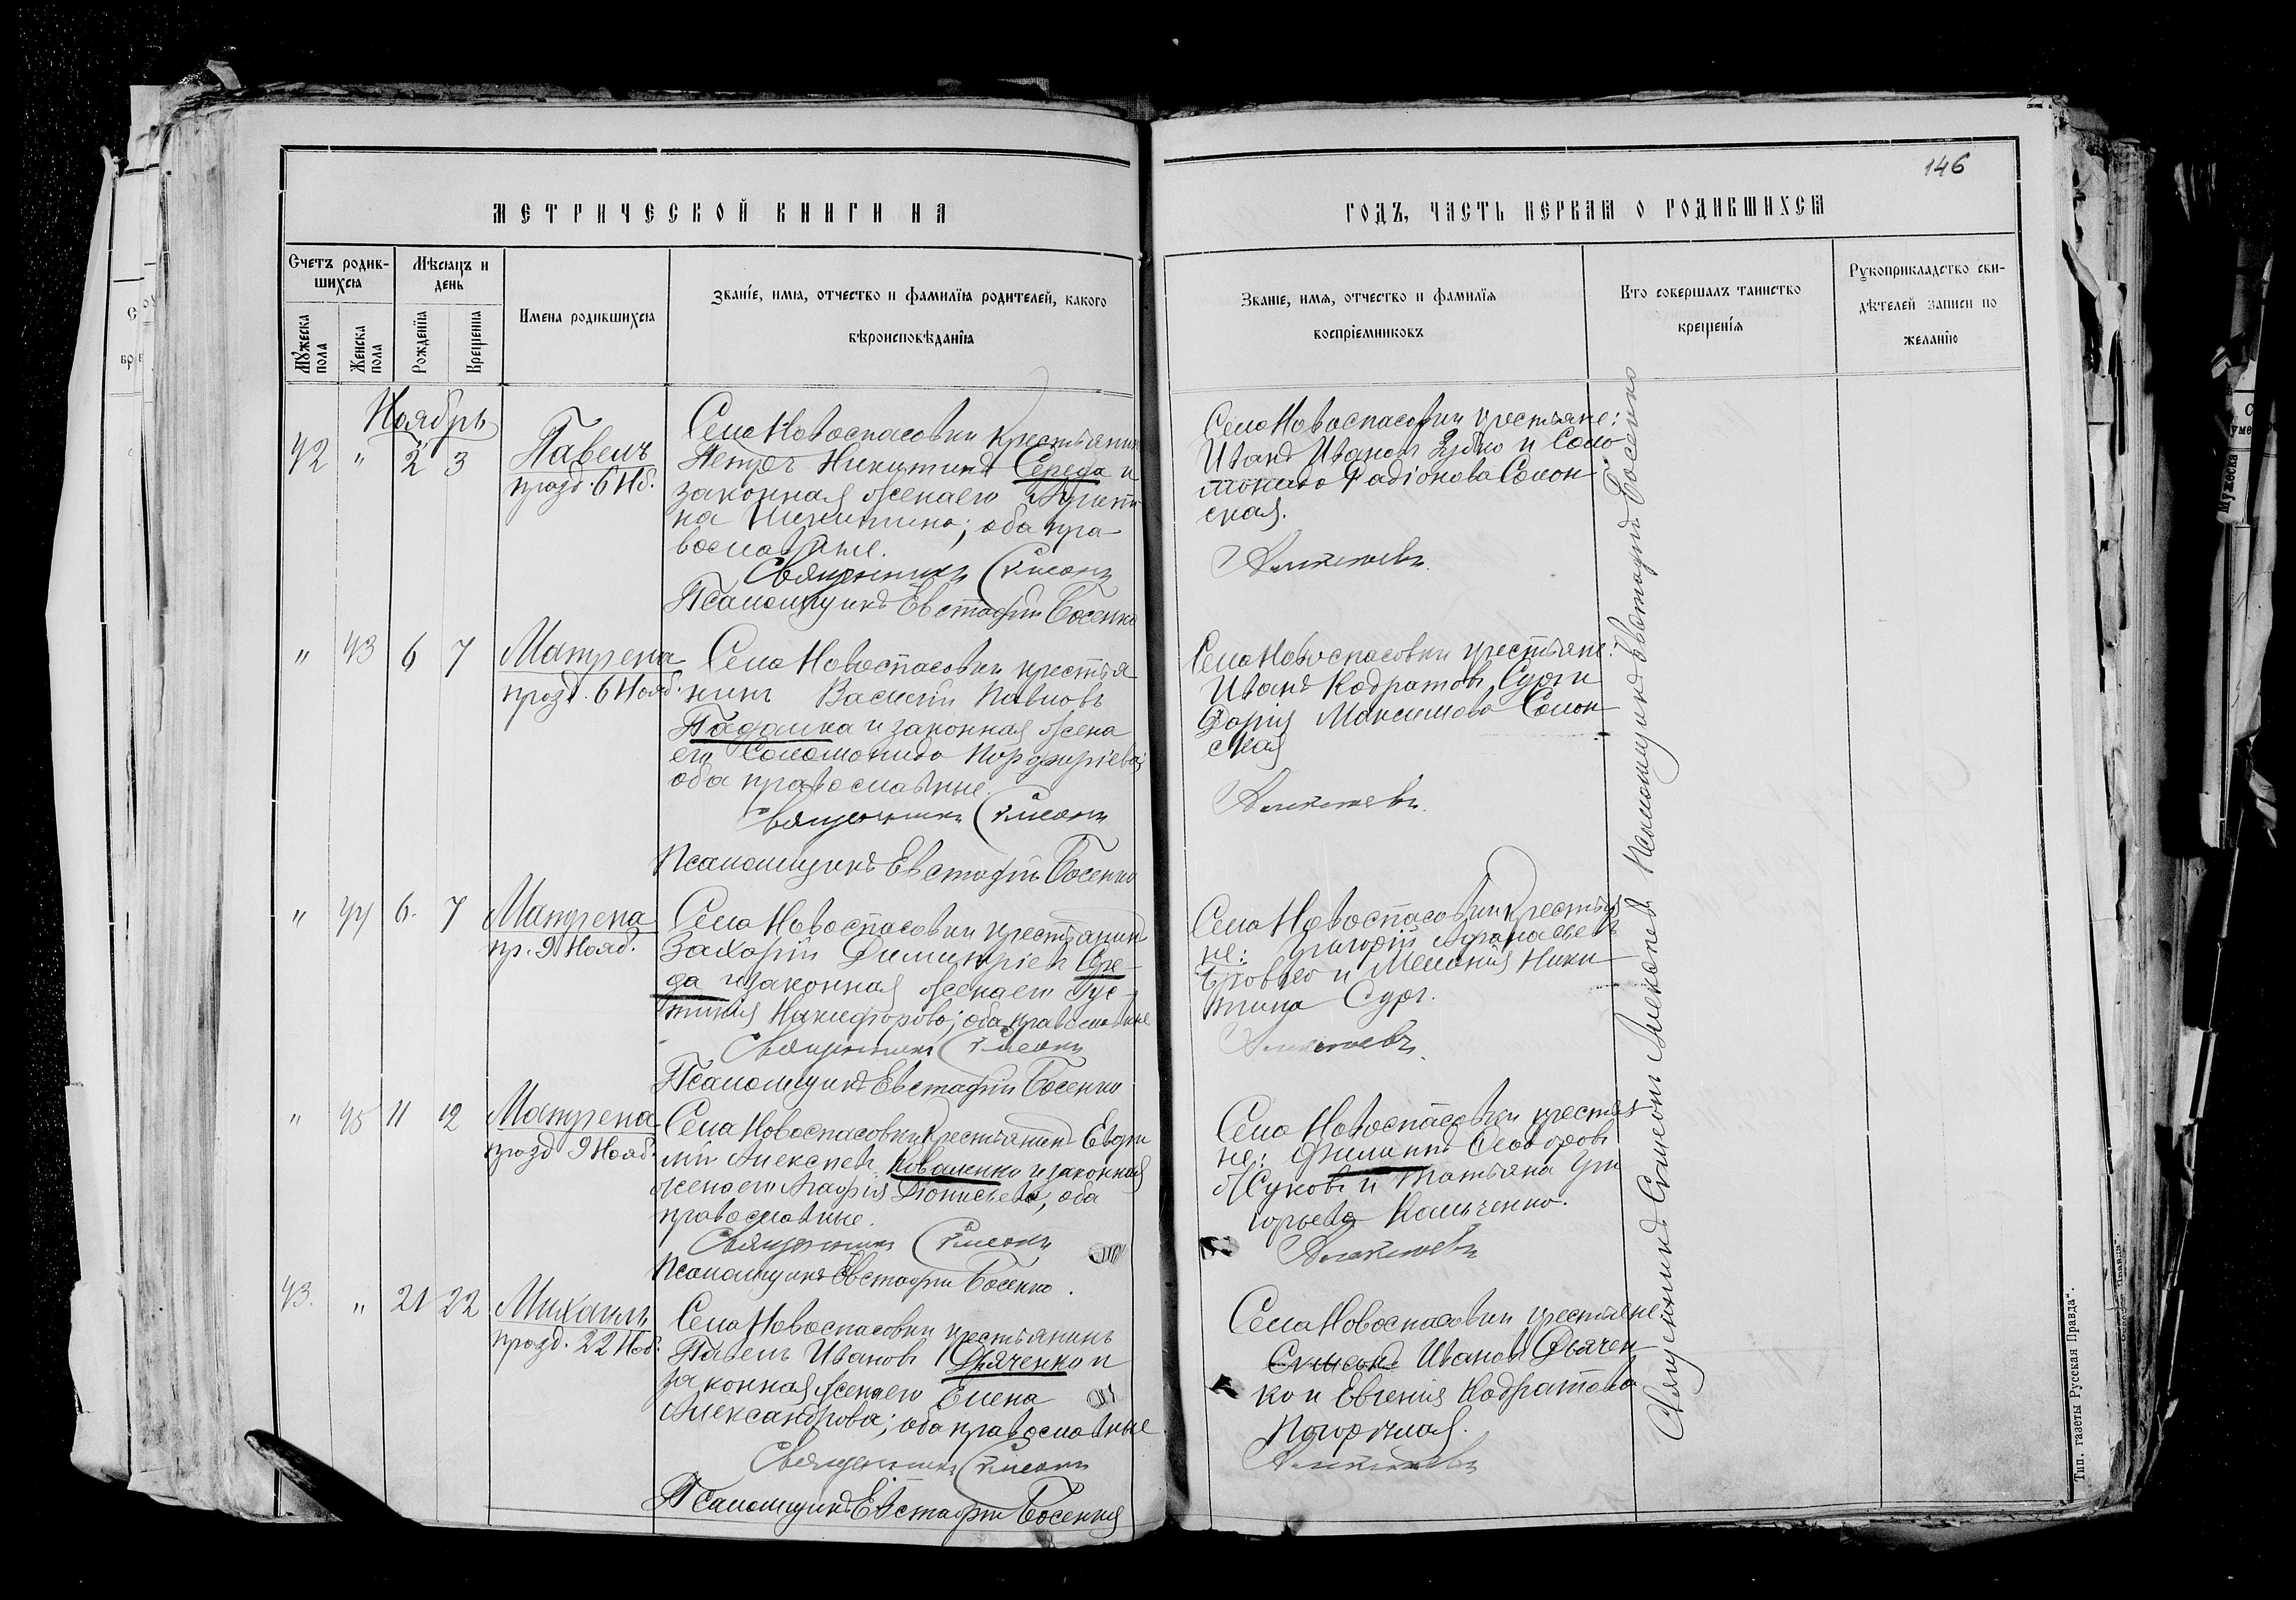 146
МЕТРИЧЕСКОЙ КНИГИ НА
ГОДЪ, ЧАСТЬ ПЕРВАЯ О РОДИВШИХСЯ
Счетъ родив-
шихся
Мужеска пола
Женска пола
Мѣсяцъ и
день
Рожденія
Крещенія
Имена родившихся
Званіе, имя, отчество и фамилія родителей, какого
вѣроисповѣданія
Званіе, имя, отчество и фамилія
воспріемниковъ
Кто совершалъ таинство
крещенія
Рукоприкладство сви-
дѣтелей записи по
желанію
Ноябрь
42 " 2 3
Павелъ
празд. 6 Нб.
Села Новоспасовки крестьянинъ
Петръ Никитинъ Середа и
законная жена его
на Никитина; оба пра-
вославные.
Священникъ Симеонъ
Псаломщикъ Евстафій Босенко
Села Новоспасовки крестьяне:
Иванъ Ивановъ Зубко и Соло-
монида Радіонова Солон-
ская.
Алексѣевъ.
" 43 6 7
Матрена
празд. 6 Нояб.
Села Новоспасовки крестья-
нинъ Василій Павловъ
Падалка и законная жена
его Соломонида Порфиріева;
оба православные.
Священникъ Симеонъ
Псаломщикъ Евстафій Босенко
Села Новоспасовки крестьяне:
Иванъ Кодратовъ Сургъ и
Дарія Максимова Солон-
ская
Алексѣевъ.
" 44 6. 7
Матрена
пр. 9 Нояб.
Села Новоспасовки крестьянинъ
Захарій Димитріевъ Сере-
да и законная жена его Іус-
тинія Никифорова; оба православные
Священникъ Симеонъ
Псаломщикъ Евстафій Босенко
Села Новоспасовки крестья-
не: Григорій Афанасьевъ
и Меланія Ники-
тина Сургъ.
Алексѣевъ.
" 45 11 12
Матрена
празд 9 Нояб.
Села Новоспасовки крестьянинъ Евфи-
мій Алексѣевъ Коваленко и законная
жена его Агафія Діонисіева; оба
православные.
Священникъ Симеонъ
Псаломщикъ Евстафій Босенко.
Села Новоспасовки крестья-
не: Филиппъ Ѳеодоровъ
Жуковъ и Татьяна Гри-
горьева Кальченко.
Алексѣевъ
43. " 21 22
Михаилъ
празд. 22 Ноб.
Села Новоспасовки крестьянинъ
Павелъ Ивановъ Дьяченко и
законная жена его Елена
Александрова; оба православные
Священникъ Симеонъ
Псаломщикъ Евстафій Босенко
Села Новоспасовки крестьяне
Симеонъ Ивановъ Дьячен-
ко и Евгенія Кодратова
Алексѣевъ
Священникъ Симеонъ Алексѣевъ Псаломщикъ Евстафій Босенко
Тип. газеты „Русская Правда“.